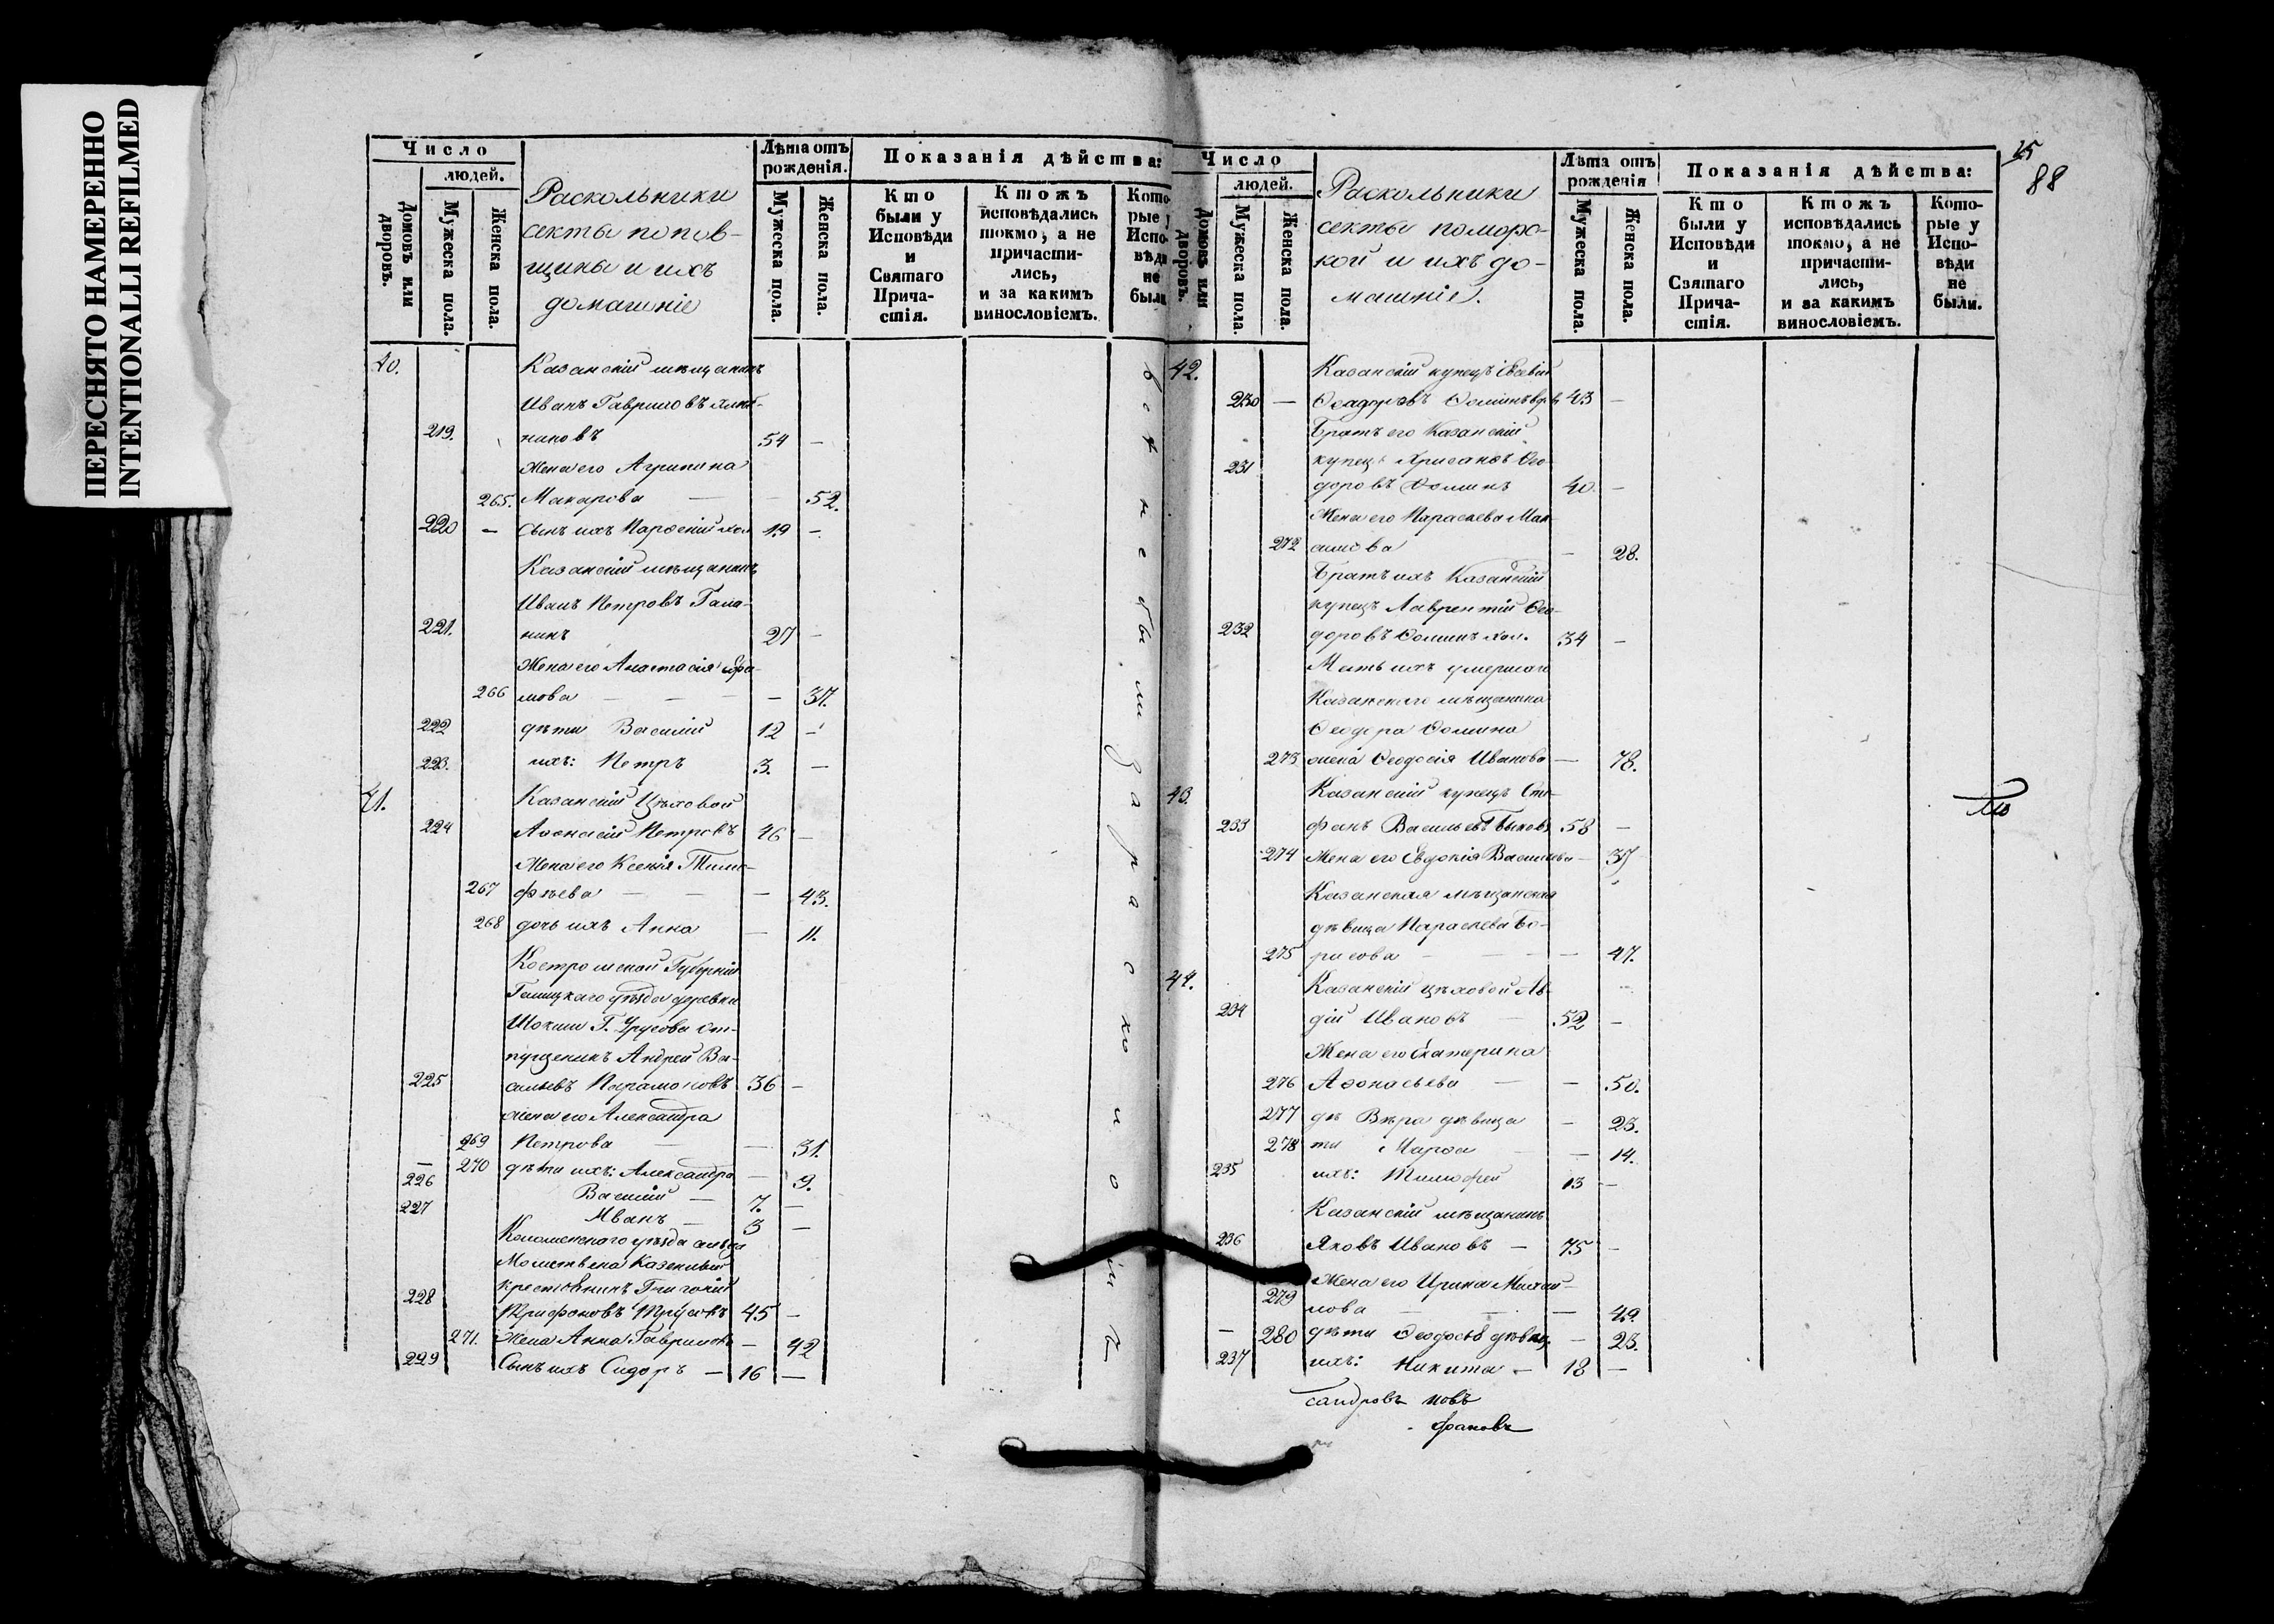 ПЕРЕСНЯТО НАМЕРЕННО
INTENTIONALLI REFILMED
Число
людей.
Домовъ или дворовъ.
Мужеска пола.
Женска пола.
Раскольники
секты попов-
щины и ихъ
домашніе
Лѣта отъ рожденія.
Мужеска пола.
Женска пола.
Показанія дѣйства:
Кто были у Исповѣди и Святаго Прича-стія.
Ктожъ исповѣдались токмо, а не причасти-лись, и за какимъ винословіемъ.
Кото-рые у Испо-вѣди не были
40. Казанскій мѣщанинъ
Иванъ Гавриловъ
219. никовъ 54 —
Жена его Агрипина
265. Макарова — — 52.
220 — Сынъ ихъ 19 —
Казанскій мѣщанинъ
Иванъ Петровъ Гала-
221. нинъ 27 —
Жена его Анастасія Ефи-
266 мова — — — — 31.
222 дѣти Василій 12 —
223. ихъ: Петръ 3. —
41. Казанскій Цѣховой
224 Аѳонасій Петровъ 46 —
Жена его Ксенія Тимо-
267 фѣева — — — 43.
268 дочь ихъ Анна — 11.
Костромской Губерніи
Галицкаго уѣзда деревни
Г. Урусова от-
пущеникъ Андрей Ва-
225 сильевъ Парамоновъ 36 —
жена его Александра
269 Петрова — — 31.
— 270 дѣти ихъ: Александра — 9.
226 Василій — 7. —
227 Иванъ — 3 —
уѣзда сельца
Казенный
крестьянинъ Григорій
228 Трифоновъ 45 —
271. Жена Анна Гаврилова — 42
229 Сынъ ихъ Сидоръ — 16 —
Число
людей.
Домовъ или дворовъ.
Мужеска пола.
Женска пола.
Раскольники
секты поморс-
кой и ихъ до-
машніе.
Лѣта отъ рожденія
Мужеска пола.
Женска пола.
Показанія дѣйства:
Кто были у Исповѣди и Святаго Прича-стія.
Ктожъ исповѣдались токмо, а не причасти-лись, и за какимъ винословіемъ.
Кото-рые у Испо-вѣди не были.
25
88
42. Казанскій купецъ Евсевій
230 — Ѳеодоровъ 43 —
Братъ его Казанскій
231 купецъ Хрисанѳъ Ѳео-
доровъ Ѳоминъ 40. —
Жена его Параскева Мак-
272 симова — 28.
Братъ ихъ Казанскій
купецъ Лаврентій Ѳео-
232 доровъ Ѳоминъ хол. 34 —
Мать ихъ умершаго
Казанскаго мѣщанина
Ѳеодора Ѳомина
273 жена Ѳеодосія Иванова — 78.
43. Казанскій купецъ Сте-
233 фанъ Васильевъ Быковъ 58 —
274 Жена его Евдокія Васильева — 37
Казанская мѣщанская
дѣвица Параскева Бо-
275 рисова — — — — 47.
44. Казанскій цѣховой Ав-
234 дій Ивановъ — 52 —
Жена его Екатерина
276 Аѳонасьева — — 50.
277 дѣ Вѣра дѣвица — 23.
278 ти Марѳа — — 14.
235 ихъ: Тимофей 13 —
Казанскій мѣщанинъ
236 Яковъ Ивановъ — 75 —
Жена его Ирина Михай-
279 лова — — — 49.
— 280 дѣти Ѳеодосія дѣвиц. — 23.
237 ихъ: Никита — 18 —
сандровъ новъ
фановъ